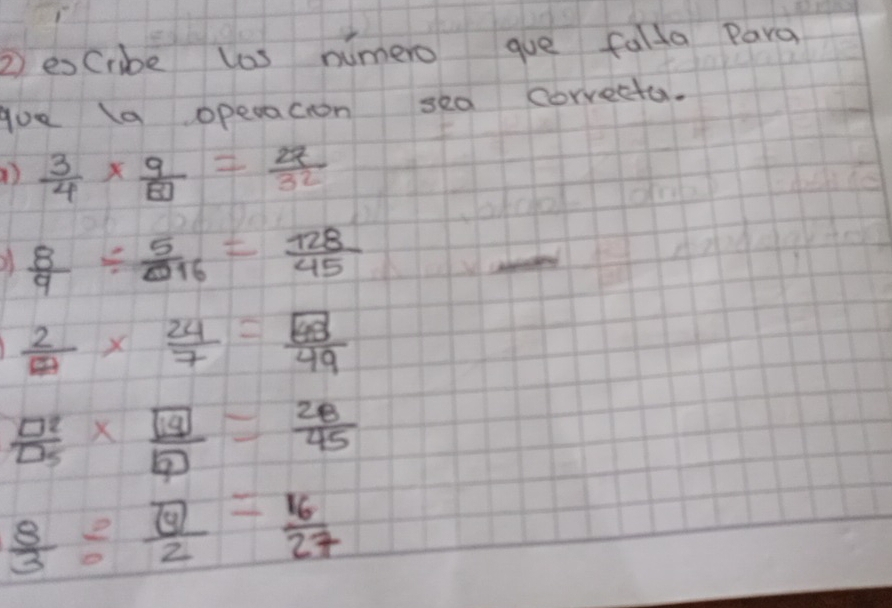 2) escribe los número que falta Para
que la operacion sea correcta.
a) 3/4 × 9/8 = 27/32
b) 8/9 ÷ 5/16 = 128/45
) 2/7 × 24/7 = 48/49
2/5 × 14/9 = 28/45
8/3 ÷ 9/2 = 16/27